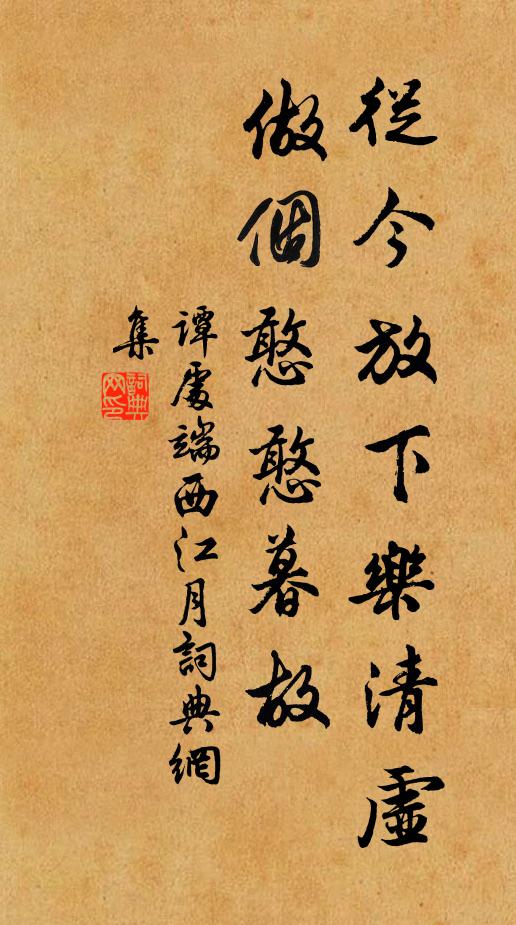 從今放下樂清虛
做個憨憨暮故
譚處端西江月詞典網
集
詞典网印